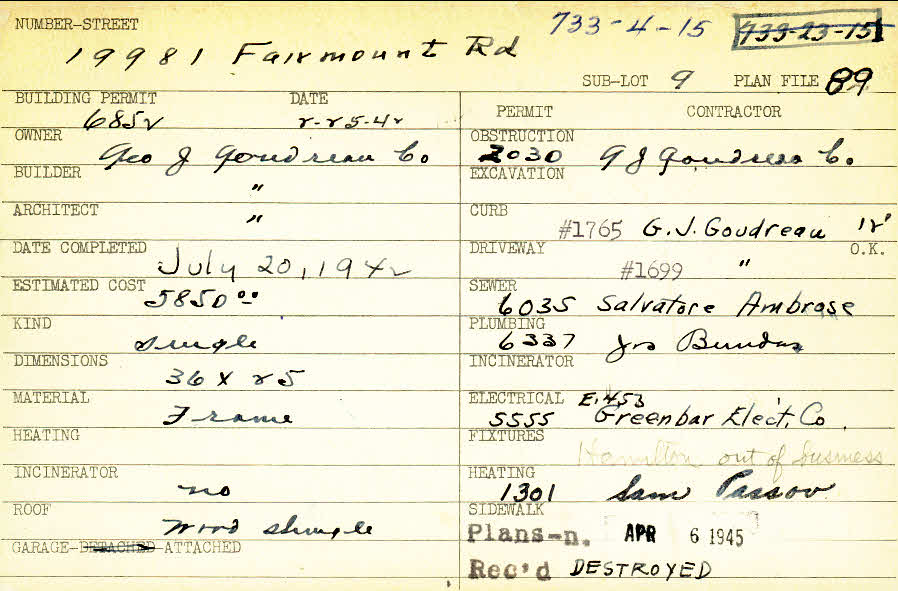 NUMBER-STREET 733-4-15 733-23-151
19981 Fairmount Rd
SUB-LOT 9 PLAN FILE 89
BUILDING PERMIT DATE
6852 2-25-42
OWNER
Geo J Goudreau Co
BUILDER
"
ARCHITECT
"
DATE COMPLETED
July 20, 1942
ESTIMATED COST
5850.00
KIND
single
DIMENSIONS
36 x 25
MATERIAL
Frame
HEATING
INCINERATOR
no
ROOF
wood shingle
GARAGE-DETACHED-ATTACHED
PERMIT CONTRACTOR
OBSTRUCTION
2030 G J Goudreau Co.
EXCAVATION
CURB
#1765 G.J. Goudreau 12'
DRIVEWAY O.K.
#1699 "
SEWER
6035 Salvatore Ambrose
PLUMBING
6337 Jos
INCINERATOR
ELECTRICAL E.453
5555 Greenbar Elect. Co.
FIXTURES
Hamilton out of business
HEATING
1301 Sam Passov
SIDEWALK
Plans-n. APR 6 1945
Rec'd DESTROYED